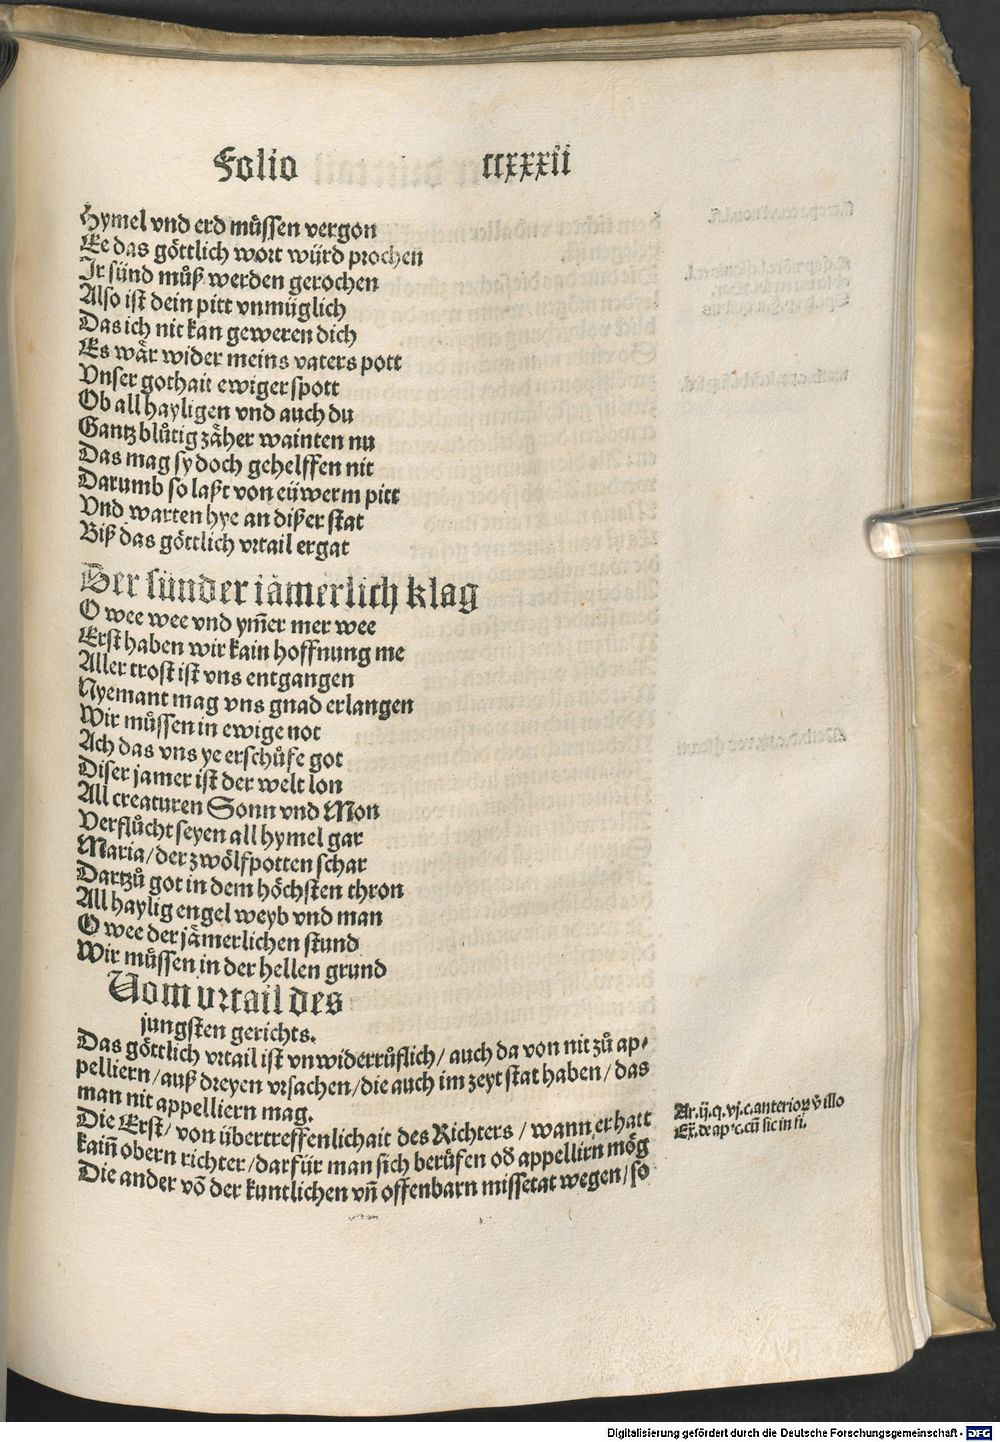 Folio ccxxxii
Hymel vnd erd muͤssen vergon
Ee das goͤttlich wort wuͤrd prochen
Jr suͤnd muͤß werden gerochen
Also ist dein pitt vnmuͤglich
Das ich nit kan geweren dich
Es waͤr wider meins vaters pott
Vnser gothait ewiger spott
Ob all hayligen vnd auch du
Gantz bluͤtig zaͤher wainten nu
Das mag sy doch gehelffen nit
Darumb so laßt von eüwerm pitt
Vnd warten hye an dißer stat
Biß das goͤttlich vrtail ergat
Der sünder jämerlich klag
O wee wee vnd ym̃er mer wee
Erst haben wir kain hoffnung me
Aller trost ist vns entgangen
Nyemant mag vns gnad erlangen
Wir muͤssen in ewige not
Ach das vns ye erschuͤfe got
Diser jamer ist der welt lon
All creaturen Sonn vnd Mon
Verfluͦcht seyen all hymel gar
Maria/ der zwoͤlfpotten schar
Dartzuͦ got in dem hoͤchsten thron
All haylig engel weyb vnd man
O wee der jaͤmerlichen stund
Wir muͤssen in der hellen grund
Vom vrtail des
jungsten gerichts.
Das goͤttlich vrtail ist vnwiderruͤflich/ auch da von nit zuͦ ap⸗
pelliern/ auß dreyen vrsachen/ die auch im zeyt stat haben/ das
man nit appelliern mag.
Die Erst/ von übertreffenlichait des Richters/ wann er hatt
kain̄ obern richter/ darfür man sich beruͤfen od̄ appellirn moͤg
Die ander vō der kuntlichen vn̄ offenbarn missetat wegen/ so
Ar. ij. q. vj. c. anterior v̄ illo
Ex̄. de apꝰ c. cū sic in fi.
Digitalisierung gefördert durch die Deutsche Forschungsgemeinschaft - DFG